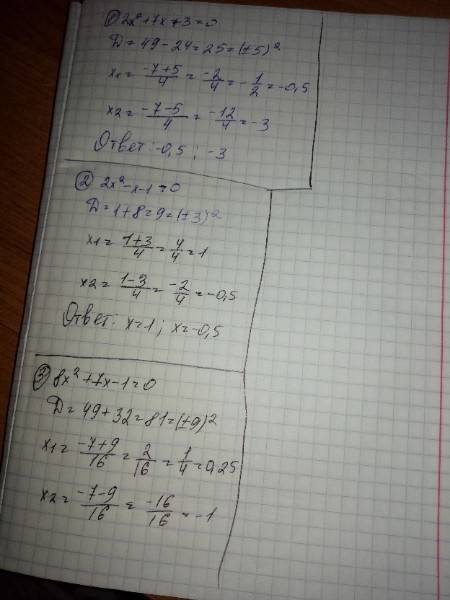 ① 2x²+7x+3=0
D=49-24=25=(±5)²
x1= -7+5/4 = -2/4 = -1/2 = -0,5
x2= -7-5/4 = -12/4 = -3
Ответ: -0,5; -3
② 2x²-x-1=0
D=1+8=9=(±3)²
x1= 1+3/4 = 4/4 = 1
x2= 1-3/4 = -2/4 = -0,5
Ответ: x=1; x=-0,5
③ 8x²+7x-1=0
D=49+32=81=(±9)²
x1= -7+9/16 = 2/16 = 1/4 = 0,25
x2= -7-9/16 = -16/16 = -1